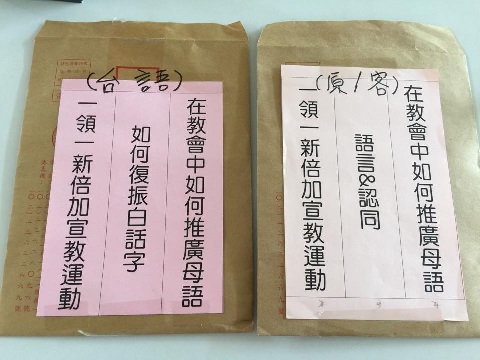 (台語)
在教會中如何推廣母語
如何復振白話字
一領一新倍加宣教運動
(原/客)
在教會中如何推廣母語
語言&認同
一領一新倍加宣教運動